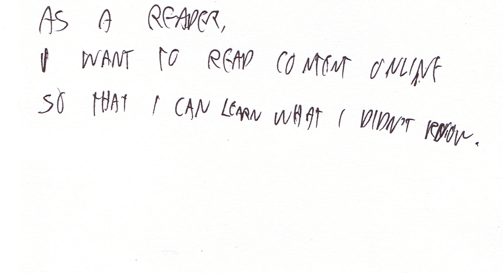 AS A READER,
I WANT TO READ CONTENT ONLINE
SO THAT I CAN LEARN WHAT I DIDN'T KNOW.